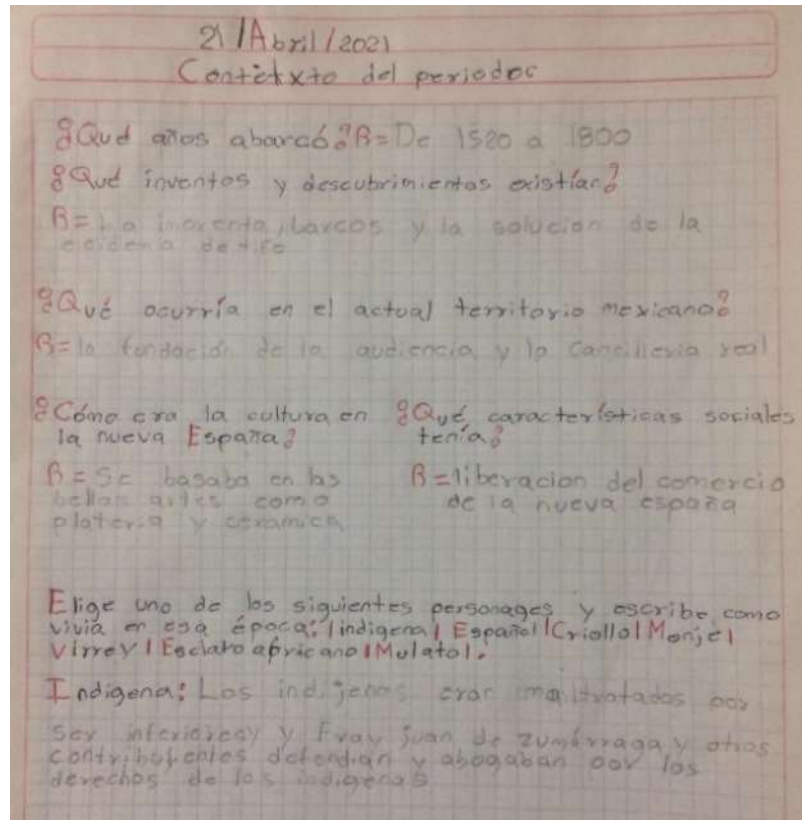 21/Abril/2021
Contetxto del periodoc
¿Qué años abarcó? R= De 1520 a 1800
¿Qué inventos y descubrimientos existían?
R= La imprenta, barcos y la solucion de la
de tifo
¿Qué ocurría en el actual territorio mexicano?
R= la fundación de la audiencia y la Cancilleria real
¿Cómo era la cultura en
la nueva España?
R= Se basaba en las
bellas artes como
plateria y ceramica
¿Qué características sociales
tenía?
R= liberacion del comercio
de la nueva españa
Elige uno de los siguientes personages y escribe como
vivia en esa época: |indigena| Español |Criollo| Monje|
Virrey | Esclavo africano | Mulato|.
Indigena: Los indijenas eran maltratados por
ser inferiores y Fray juan de zumárraga y otros
defendian y abogaban por los
derechos de los indigenas